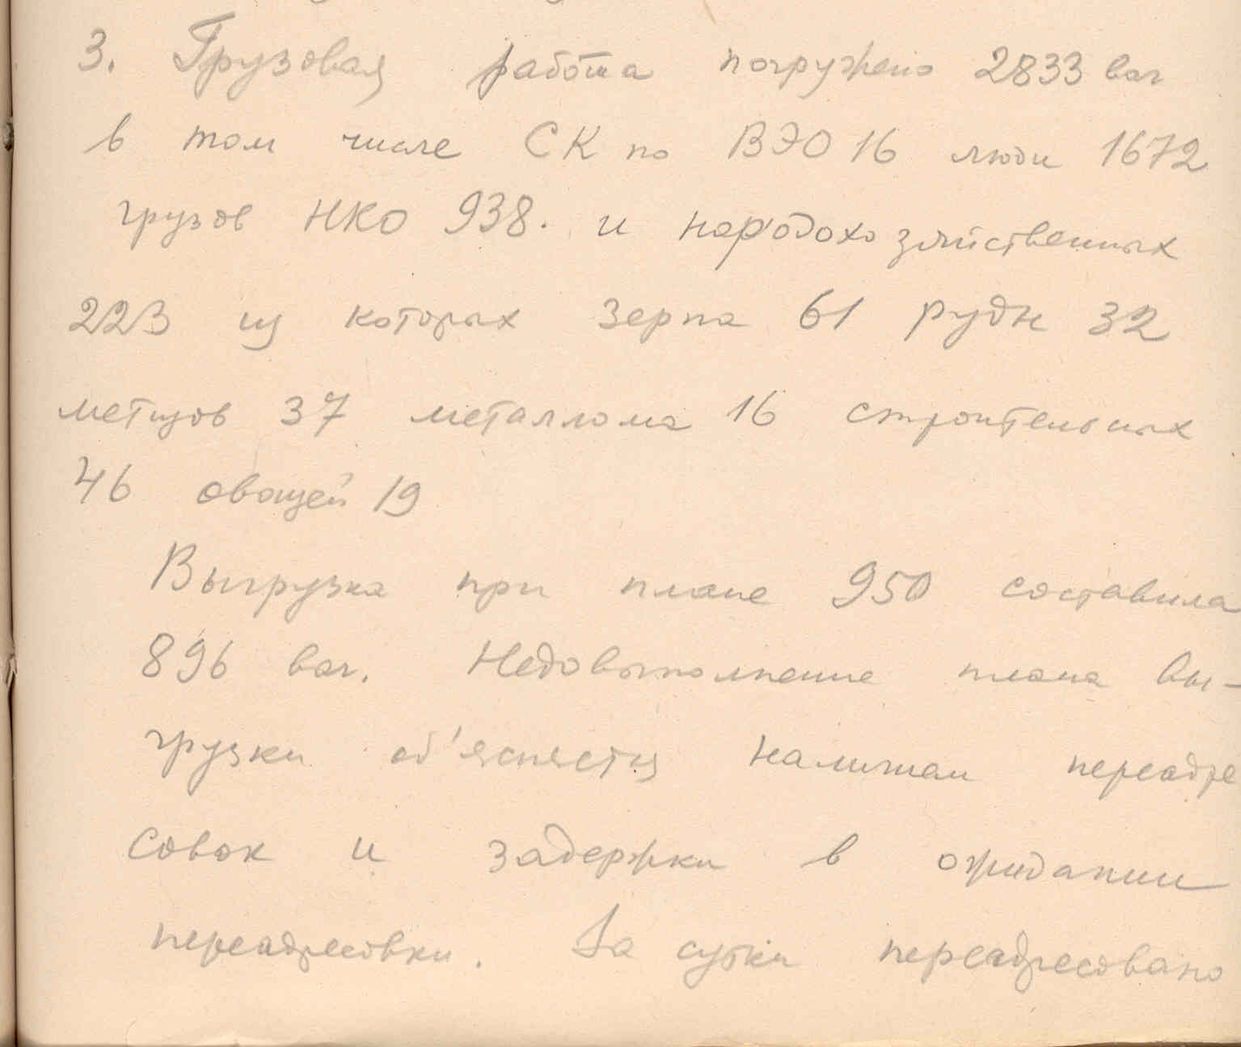 3. Грузовая работа погружено 2833 ваг
в том числе СК по ВЭО 16 люди 1672
грузов НКО 938. и народохозяйственных
223 из которых зерна 61 руды 32
метизов 37 металлома 16 строительных
46 овощей 19
Выгрузка при плане 950 составила
896 ваг. Недовыполнение плана вы-
грузки об'ясняется наличием переадре
совок и задержки в ожидании
переадресовки. За сутки переадресовано